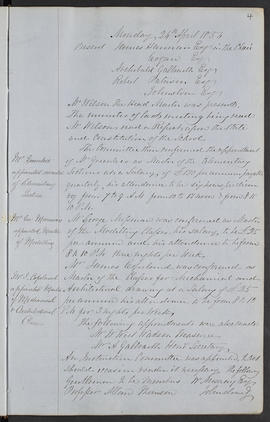 4
Monday, 24th April 1854
Present James Esqr in the Chair
Esqr
Archibald Galbraith Esqr
Robert Esqr
Johnstone Esqr
Mr Wilson the Head Master was present.
The minutes of last meeting being read
Mr Wilson read a Report upon the State
and Constitution of the School.
The Committee then confirmed the appointment
of Mr Greenlees as Master of the Elementary
Sections at a Salary of £ per annum payable
quarterly, his attendance to be
from 7 to 9 A.M. from to and from 8 to
10 P.M.
Mr George was confirmed as Master
of the Modelling Classes, his salary to be £35
per annum and his attendance to be from
8 to 10 P.M. three nights per Week.
Mr Thomas was confirmed as
Master of the Classes for Mechanical and
Architectural drawing at a Salary of £35
per annum his attendance to be from 8 to 10
P.M. for 3 nights per Week.
The following appointments were also made
Mr W. West Watson Treasurer
Mr A Galbraith Hony Secretary.
An Instruction Committee was appointed, to act
should occasion render it necessary the following
Gentlemen to be members Wm Murray Esqr
Professor Allen Thomson
Mr Greenlees
appointed master
of Elementary
Section
Mr Geo
appointed Master
of Modelling
Mr T.
appointed Master
of Mechanical
& Architectural
Class